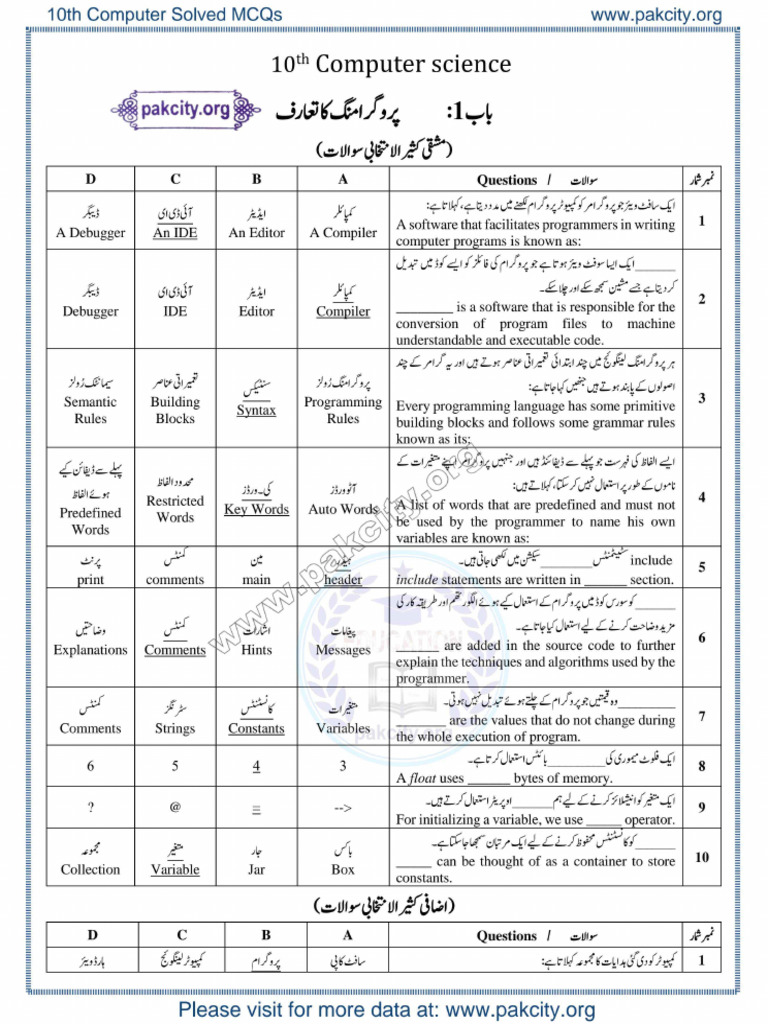 10th Computer Solved MCQs www.pakcity.org
10th Computer science
pakcity.org
باب 1: پروگرامنگ کا تعارف
(مشقی کثیر الانتخابی سوالات)
D C B A Questions / سوالات نمبر شمار
ایک سافٹ ویئر جو پروگرامر کو کمپیوٹر پروگرام لکھنے میں مدد دیتا ہے، کہلاتا ہے:
A software that facilitates programmers in writing
computer programs is known as:
1
کمپائلر
A Compiler
ایڈیٹر
An Editor
آئی ڈی ای
An IDE
ڈیبگر
A Debugger
______ایک ایسا سوفٹ ویئر ہوتا ہے جو پروگرام کی فائلز کو ایسے کوڈ میں تبدیل
کر دیتا ہے جسے مشین سمجھ سکے اور چلا سکے۔
________ is a software that is responsible for the
conversion of program files to machine
understandable and executable code.
2
کمپائلر
Compiler
ایڈیٹر
Editor
آئی ڈی ای
IDE
ڈیبگر
Debugger
ہر پروگرامنگ لینگوئج میں چند ابتدائی تعمیراتی عناصر ہوتے ہیں اور یہ گرامر کے چند
اصولوں کے پابند ہوتے ہیں جنھیں کہا جاتا ہے:
Every programming language has some primitive
building blocks and follows some grammar rules
known as its:
3
پروگرامنگ رُولز
Programming
Rules
سنٹیکس
Syntax
تعمیراتی عناصر
Building
Blocks
سیمانٹک رُولز
Semantic
Rules
ایسے الفاظ کی فہرست جو پہلے سے ڈیفائنڈ ہیں اور جنہیں پروگرامر اپنے متغیرات کے
ناموں کے طور پر استعمال نہیں کر سکتا، کہلاتے ہیں:
A list of words that are predefined and must not
be used by the programmer to name his own
variables are known as:
4
آٹو ورڈز
Auto Words
کی۔ورڈز
Key Words
محدود الفاظ
Restricted
Words
پہلے سے ڈیفائن کیے
ہوئے الفاظ
Predefined
Words
include سٹیٹمنٹس________سیکشن میں لکھی جاتی ہیں۔
include statements are written in ______ section.
5
ہیڈر
header
مین
main
کمنٹس
comments
پرنٹ
print
______کو سورس کوڈ میں پروگرام کے استعمال کیے ہوئے الگورتھم اور طریقہ کار کی
مزید وضاحت کرنے کے لیے استعمال کیا جاتا ہے۔
______ are added in the source code to further
explain the techniques and algorithms used by the
programmer.
6
پیغامات
Messages
اشارات
Hints
کمنٹس
Comments
وضاحتیں
Explanations
________وہ قیمتیں جو پروگرام کے چلتے ہوئے تبدیل نہیں ہوتی۔
_______ are the values that do not change during
the whole execution of program.
7
متغیرات
Variables
کانسٹنٹس
Constants
سٹرنگز
Strings
کمنٹس
Comments
ایک فلوٹ میموری کی________بائٹس استعمال کرتا ہے۔
A float uses ______ bytes of memory.
8
3
4
5
6
ایک متغیر کو انیشلائز کرنے کے لیے ہم______اوپریٹر استعمال کرتے ہیں۔
For initializing a variable, we use _____ operator.
9
-->
=
@
?
______کو کانسٹنٹس محفوظ کرنے کے لیے ایک مرتبان سمجھا جا سکتا ہے۔
_____ can be thought of as a container to store
constants.
10
باکس
Box
جار
Jar
متغیر
Variable
مجموعہ
Collection
(اضافی کثیر الانتخابی سوالات)
D C B A Questions / سوالات نمبر شمار
کمپیوٹر کو دی گئی ہدایات کا مجموعہ کہلاتا ہے:
1
سافٹ کاپی
پروگرام
کمپیوٹر لینگوئج
ہارڈ ویئر
www.pakcity.org
EDUCATION
pakcity.org
Please visit for more data at: www.pakcity.org